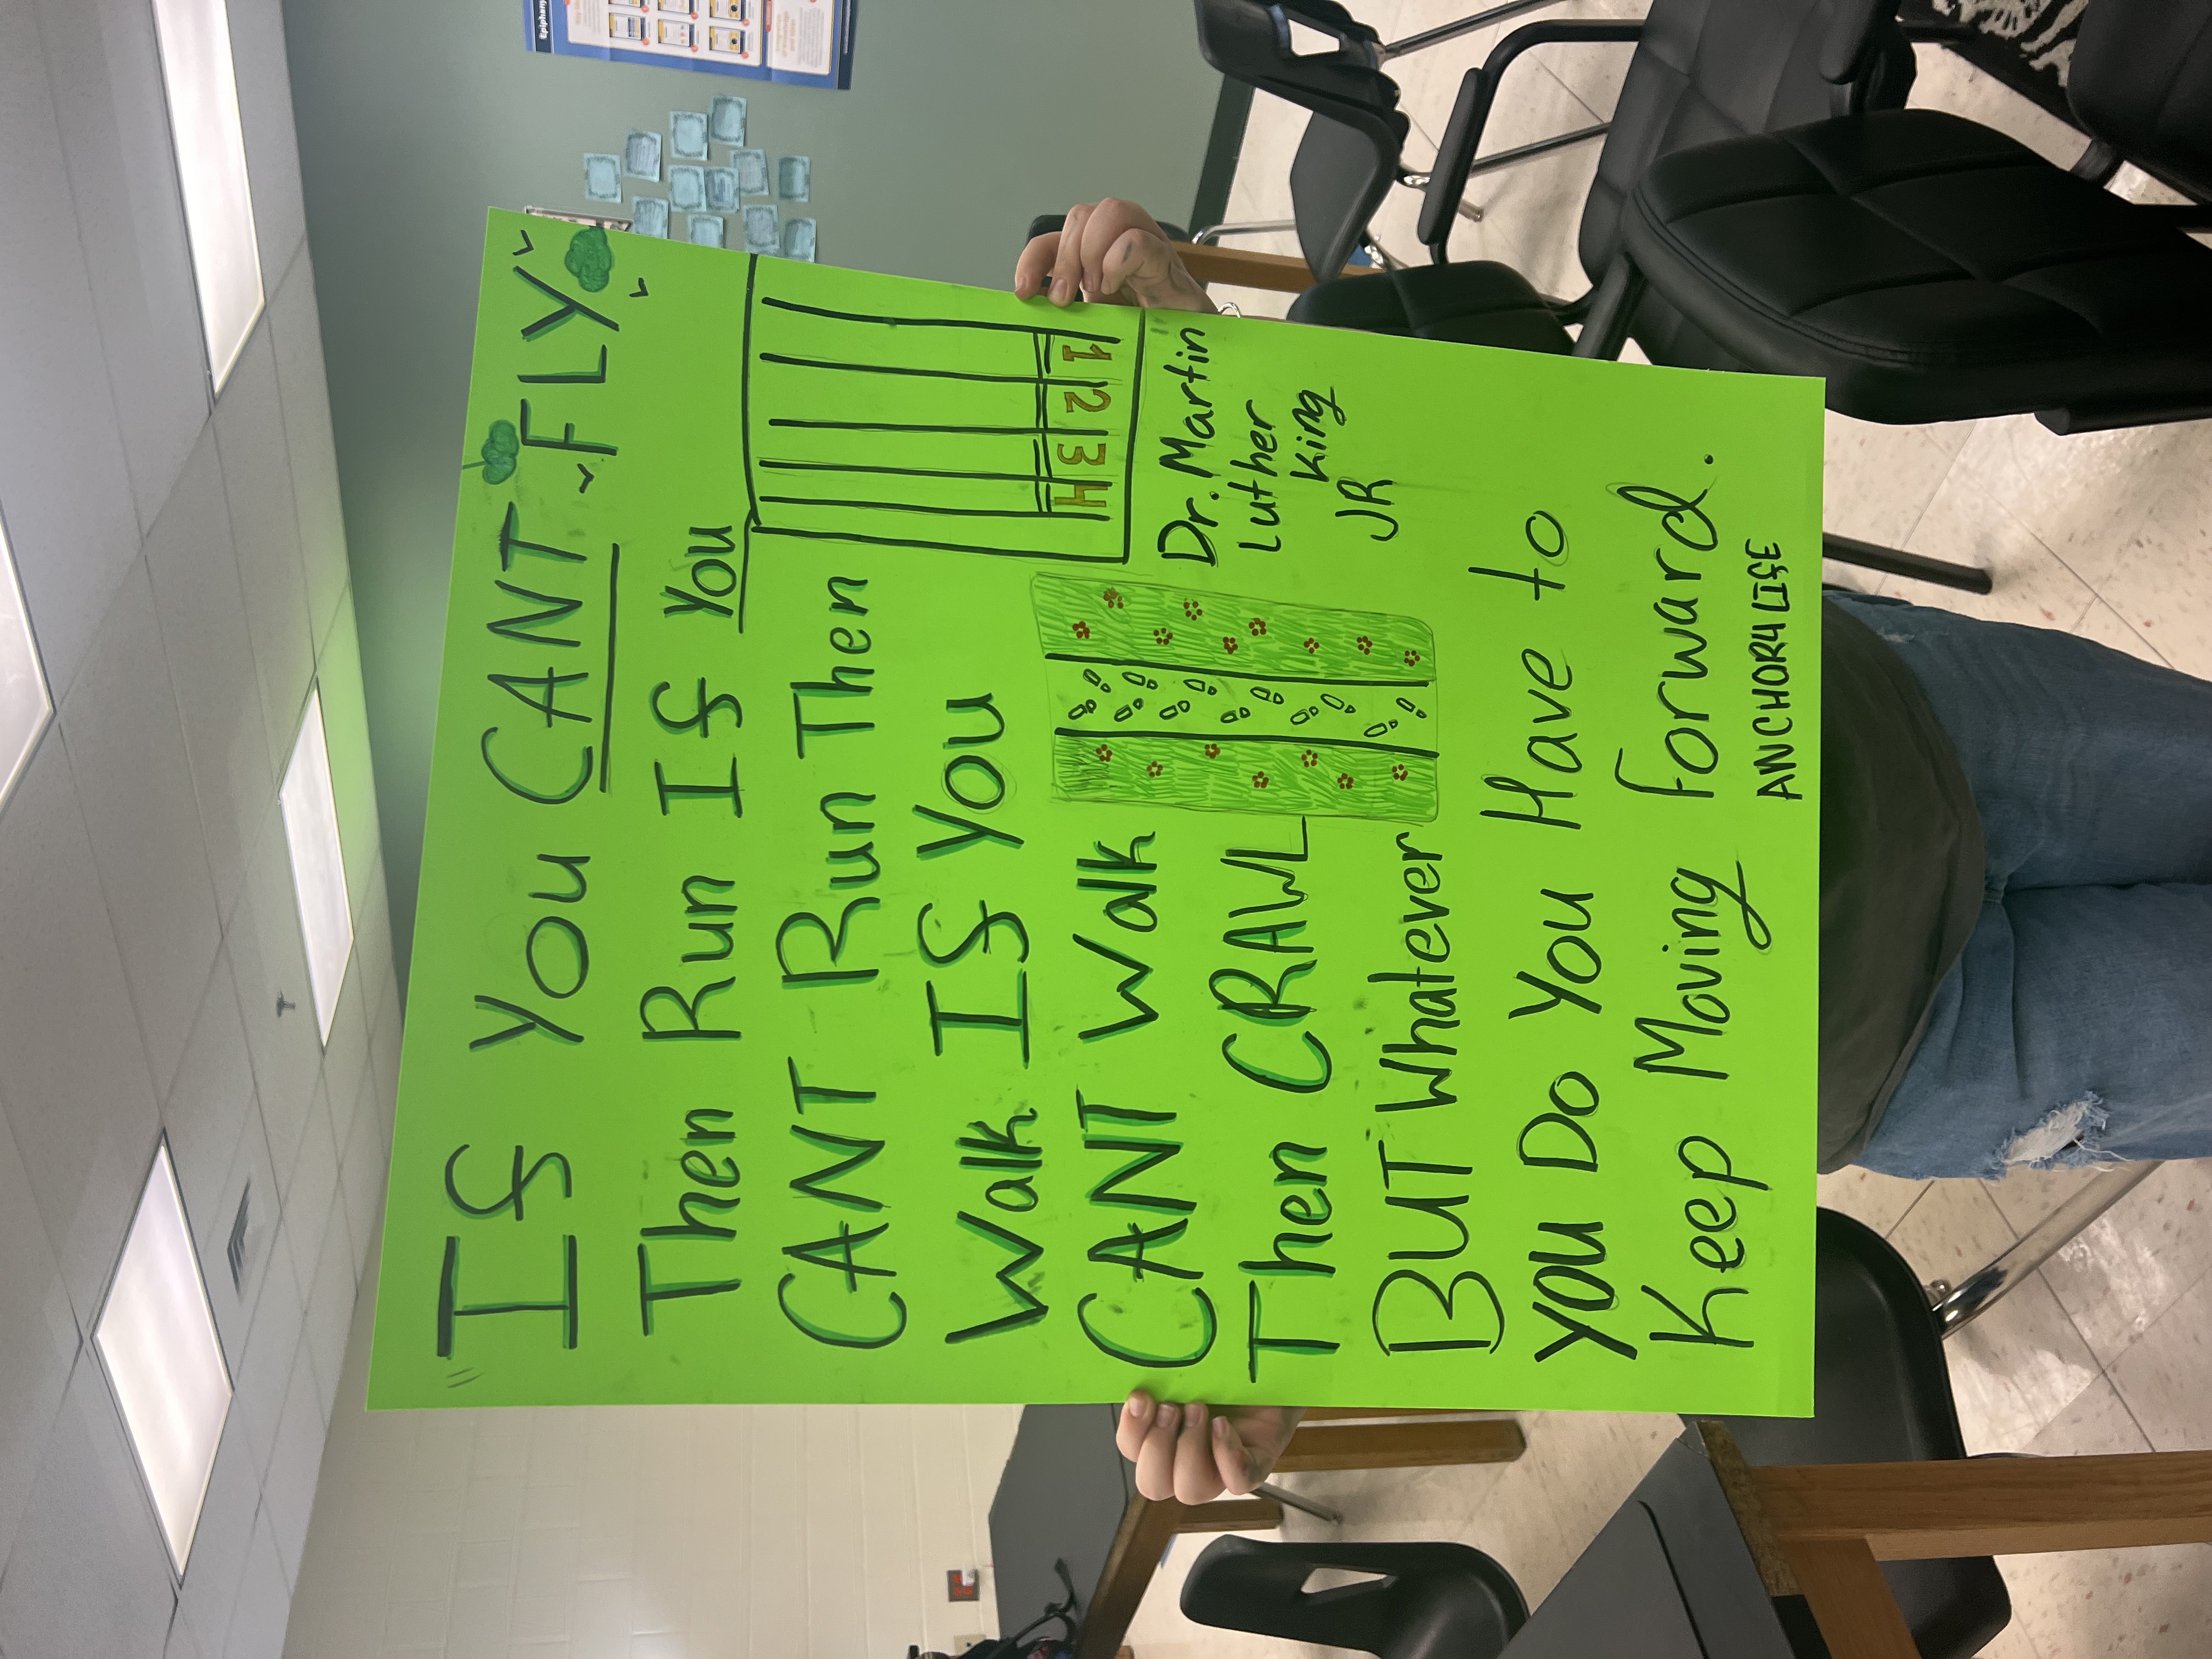 If You CANT FLY
Then Run If You
CANT Run Then
Walk If You
CANT Walk
Then CRAWL
BUT Whatever
You Do You Have to
Keep Moving forward.
1 2 3 4
Dr. Martin
Luther
King
JR
ANCHOR4LIFE
Epiphany